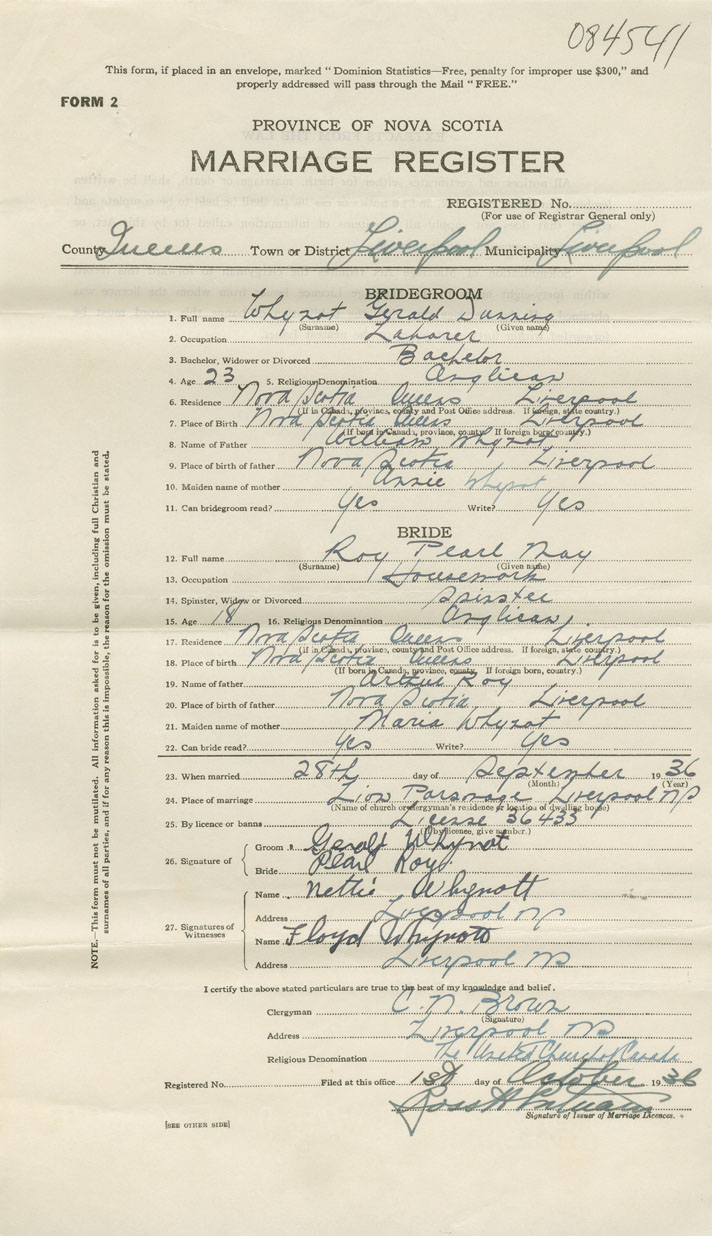 084541
This form, if placed in an envelope, marked "Dominion Statistics—Free, penalty for improper use $300," and
properly addressed will pass through the Mail "FREE."
FORM 2
PROVINCE OF NOVA SCOTIA
MARRIAGE REGISTER
REGISTERED No.
(For use of Registrar General only)
County Queens Town or District Liverpool Municipality Liverpool
BRIDEGROOM
1. Full name Whynot Gerald Dunning
(Surname) (Given name)
2. Occupation Laborer
3. Bachelor, Widower or Divorced Bachelor
4. Age 23 5. Religious Denomination Anglican
6. Residence Nova Scotia Queens Liverpool
(If in Canada, province, county and Post Office address. If foreign, state country.)
7. Place of Birth Nova Scotia Queens Liverpool
(If born in Canada, province, county. If foreign born, country.)
8. Name of Father William Whynot
9. Place of birth of father Nova Scotia Liverpool
10. Maiden name of mother Annie Whynot
11. Can bridegroom read? Yes Write? Yes
BRIDE
12. Full name Roy Pearl May
(Surname) (Given name)
13. Occupation Housework
14. Spinster, Widow or Divorced Spinster
15. Age 18 16. Religious Denomination Anglican
17. Residence Nova Scotia Queens Liverpool
(If in Canada, province, county and Post Office address. If foreign, state country.)
18. Place of birth Nova Scotia Queens Liverpool
(If born in Canada, province, county. If foreign born, country.)
19. Name of father Arthur Roy
20. Place of birth of father Nova Scotia Liverpool
21. Maiden name of mother Maria Whynot
22. Can bride read? Yes Write? Yes
23. When married 28th day of September 1936
(Month) (Year)
24. Place of marriage Zion Parsonage Liverpool NS
(Name of church or clergyman's residence or location of dwelling house)
25. By licence or banns License 36433
(If by licence, give number.)
26. Signature of
Groom Gerald Whynot
Bride Pearl Roy
27. Signatures of Witnesses
Name Nettie Whynott
Address Liverpool NS
Name Floyd Whynott
Address Liverpool NS
I certify the above stated particulars are true to the best of my knowledge and belief.
Clergyman C. N. Brown
(Signature)
Address Liverpool NS
Religious Denomination The United Church of Canada
Registered No. Filed at this office 1st day of October 1936
Signature of Issuer of Marriage Licences.
[SEE OTHER SIDE]
NOTE.—This form must not be mutilated. All information asked for is to be given, including full Christian and
surnames of all parties, and if for any reason this is impossible, the reason for the omission must be stated.